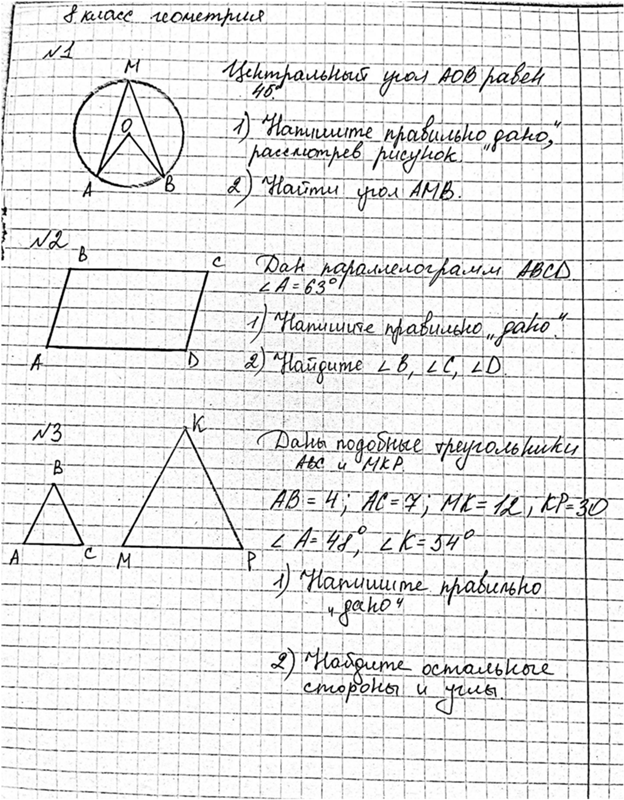 8 класс геометрия
№1
M
O
A
B
Центральный угол AOB равен
46°
1) Напишите правильно "дано",
рассмотрев рисунок.
2) Найти угол AMB.
№2
B
C
A
D
Дан параллелограмм ABCD
∠A = 63°
1) Напишите правильно "дано".
2) Найдите ∠B, ∠C, ∠D.
№3
K
B
A
C
M
P
Даны подобные треугольники
ABC и MKP.
AB = 4; AC = 7; MK = 12, KP = 30
∠A = 48°, ∠K = 54°
1) Напишите правильно
"дано"
2) Найдите остальные
стороны и углы.